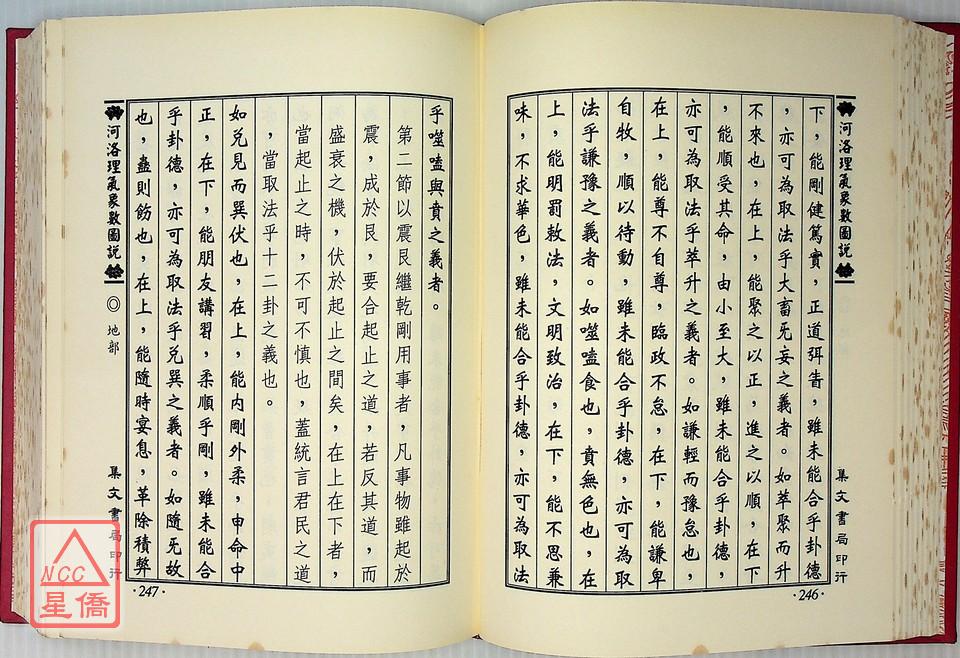 河洛理氣象數圖說
集文書局印行
下，能剛健篤實，正道弭眚，雖未能合乎卦德
，亦可為取法乎大畜旡妄之義者。如萃聚而升
不來也，在上，能聚之以正，進之以順，在下
，能順受其命，由小至大，雖未能合乎卦德，
亦可為取法乎萃升之義者。如謙輕而豫怠也，
在上，能尊不自尊，臨政不怠，在下，能謙卑
自牧，順以待動，雖未能合乎卦德，亦可為取
法乎謙豫之義者。如噬嗑食也，賁無色也，在
上，能明罰敕法，文明致治，在下，能不思兼
味，不求華色，雖未能合乎卦德，亦可為取法
·246·
乎噬嗑與賁之義者。
第二節以震艮繼乾剛用事者，凡事物雖起於
震，成於艮，要合起止之道，若反其道，而
盛衰之機，伏於起止之間矣，在上在下者，
當起止之時，不可不慎也，蓋統言君民之道
，當取法乎十二卦之義也。
如兌見而巽伏也，在上，能內剛外柔，申命中
正，在下，能朋友講習，柔順乎剛，雖未能合
乎卦德，亦可為取法乎兌巽之義者。如隨旡故
也，蠱則飭也，在上，能隨時宴息，革除積弊
河洛理氣象數圖說
◎地部
集文書局印行
·247·
NCC
星僑